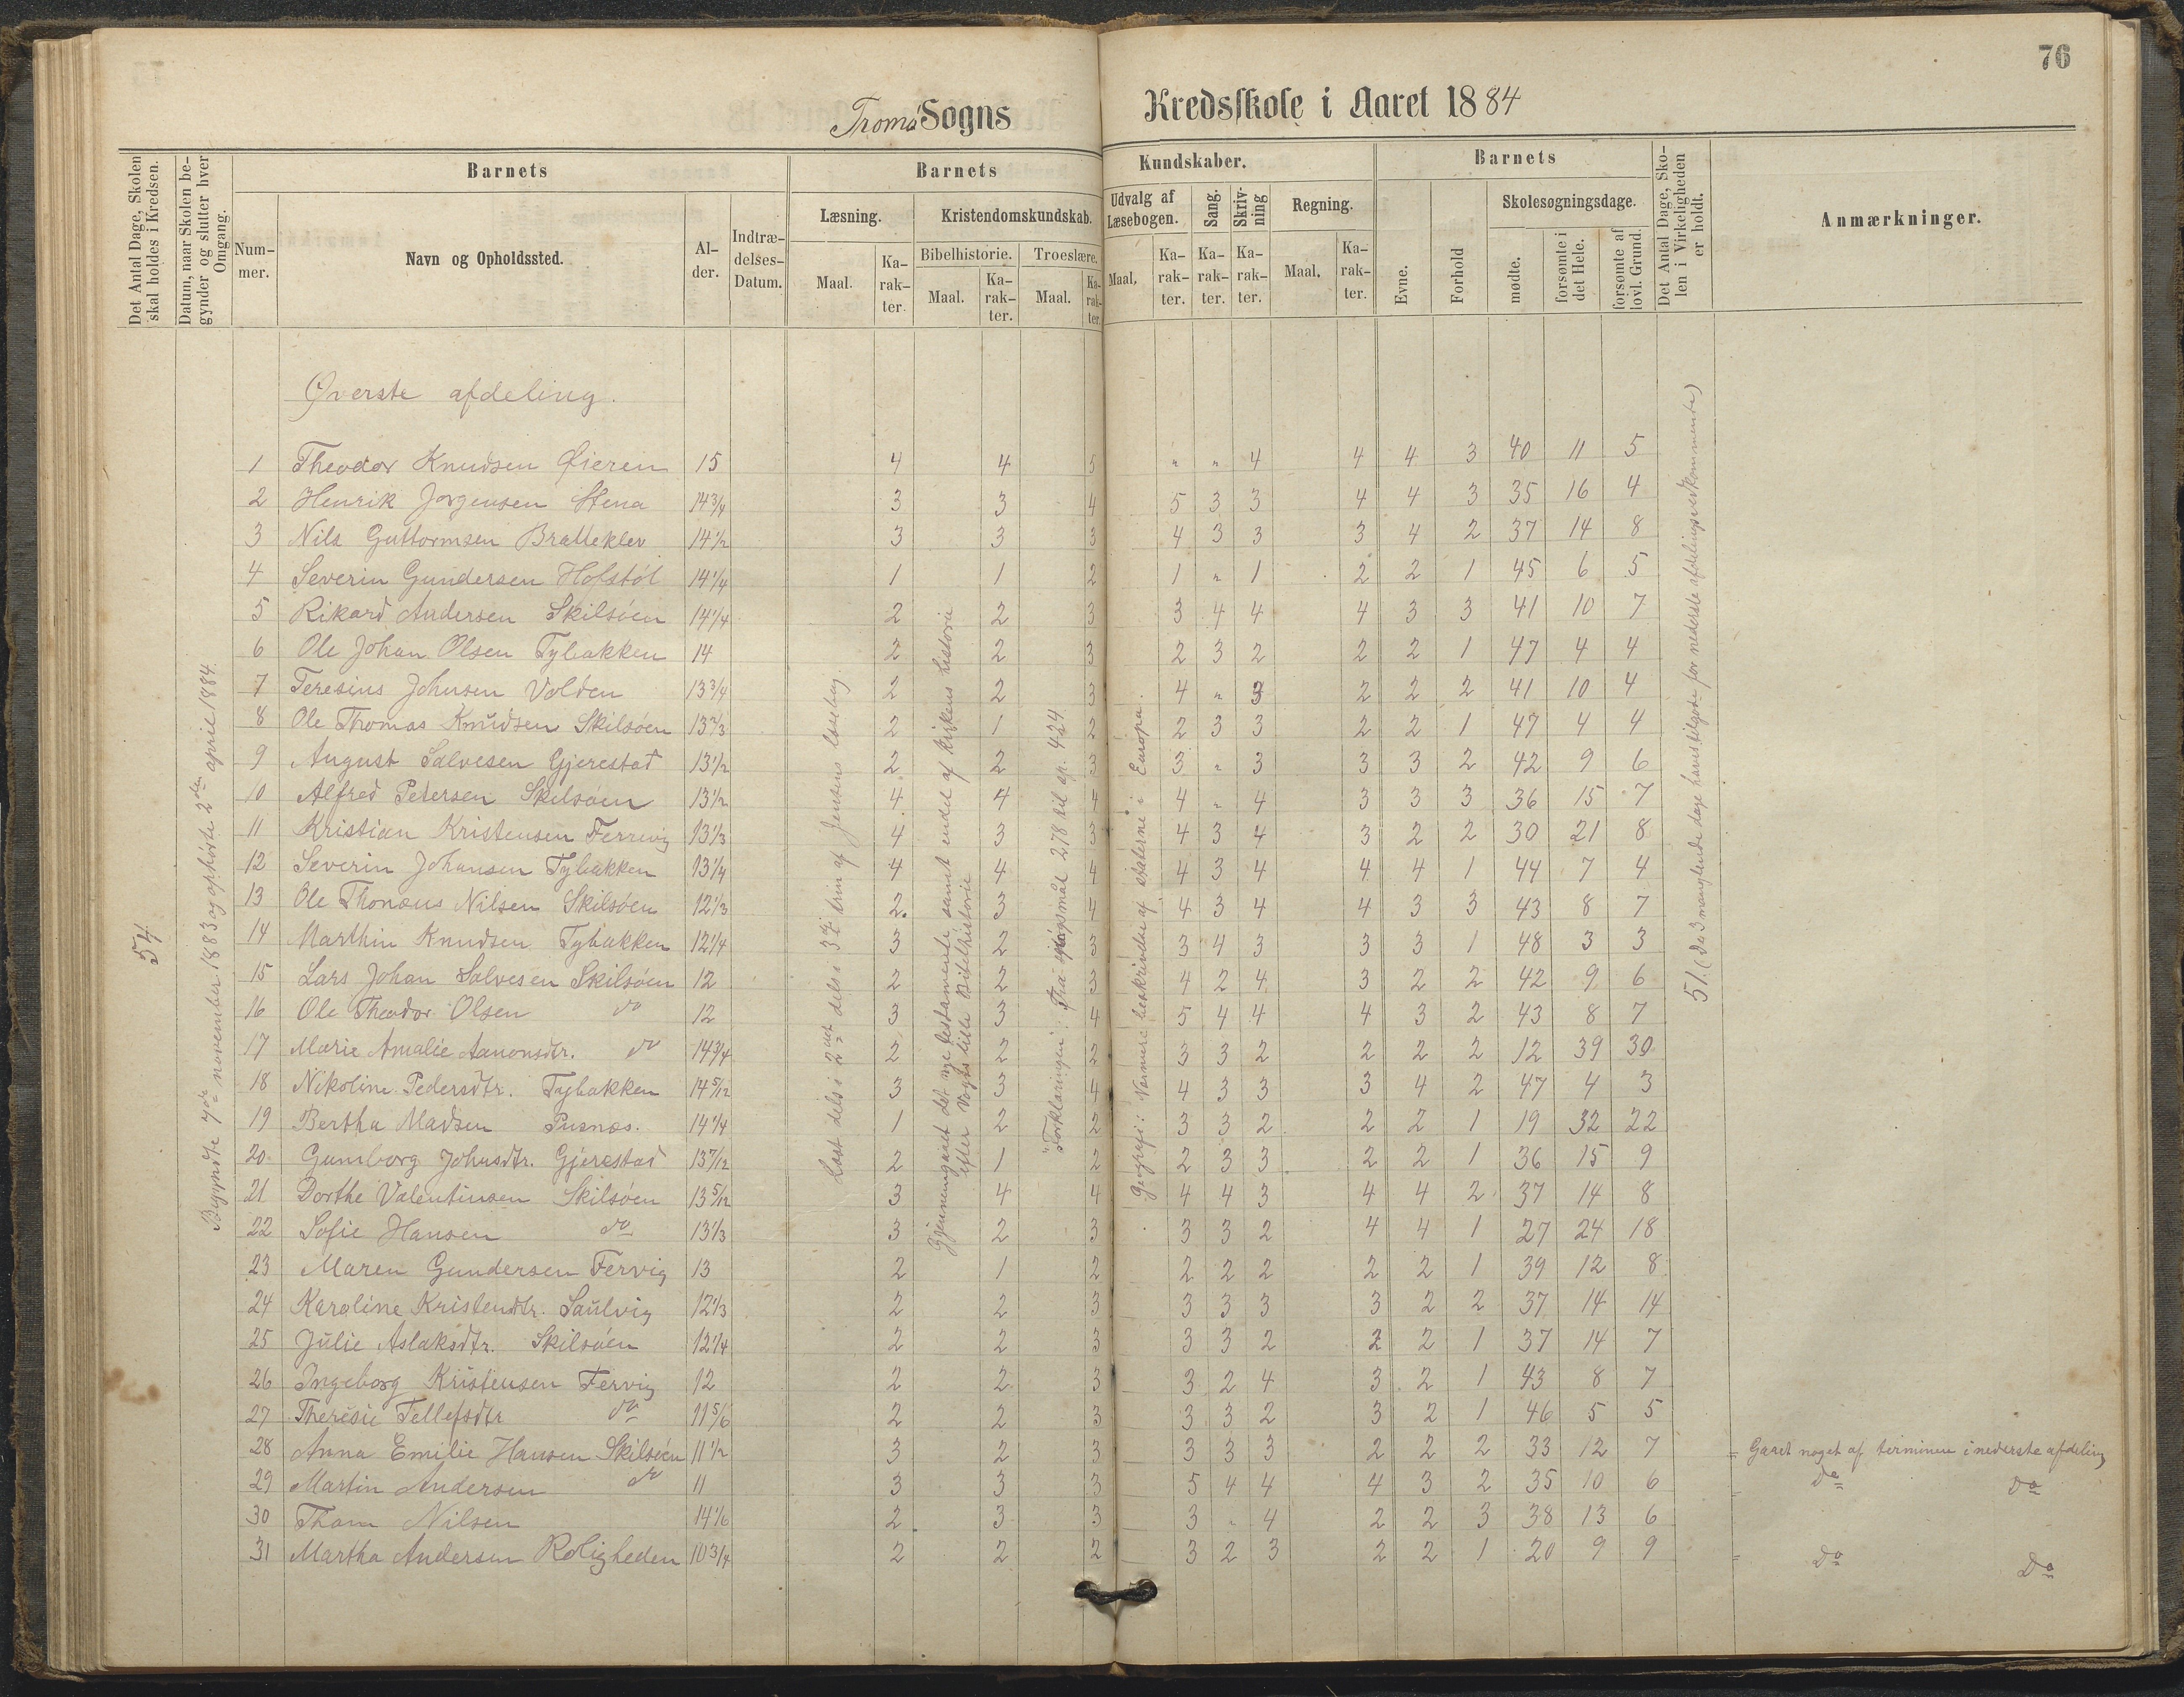 76
Tromø Sogns Kredsskole i Aaret 1884
Det Antal Dage, Skolen skal holdes i Kredsen.
Datum, naar Skolen begynder og slutter hver Omgang.
Barnets
Nummer.
Navn og Opholdssted.
Alder.
Indtrædelses-Datum.
Barnets Kundskaber.
Læsning.
Maal.
Karakter.
Kristendomskundskab.
Bibelhistorie.
Maal.
Karakter.
Troeslære.
Maal.
Karakter.
Udvalg af Læsebogen.
Maal.
Karakter.
Sang.
Karakter.
Skrivning
Karakter.
Regning.
Maal.
Karakter.
Barnets
Evne.
Forhold
Skolesøgningsdage.
mødte.
forsømte i det Hele.
forsømte af lovl. Grund.
Det Antal Dage, Skolen i Virkeligheden er holdt.
Anmærkninger.
54
Begyndte 7de november 1883 og ophørte 2den april 1884.
Øverste afdeling.
Læst dels i 2det dels i 3die trin af Jensens læsebog.
Gjennemgaaet det nye testamente samt endel af kirkens historie efter Vogts lille Bibelhistorie
"Forklaringen": Fra spørgsmål 278 til sp. 434.
Geografi: Nærmere beskrivelse af staterne i Europa.
51. (De 3 manglende dage haves tilgode for nederste afdelings vedkommende)
1 Theodor Knudsen Øieren 15 4 4 5 " " 4 4 4 3 40 11 5
2 Henrik Jorgensen Stena 14 3/4 3 3 4 5 3 3 4 4 3 35 16 4
3 Nils Guttormsen Bratteklev 14 1/2 3 3 3 4 3 3 3 4 2 37 14 8
4 Severin Gundersen Hofstøl 14 1/4 1 1 2 1 " 1 2 2 1 45 6 5
5 Rikard Andersen Skilsøen 14 1/4 2 2 3 3 4 4 4 3 3 41 10 7
6 Ole Johan Olsen Tybakken 14 2 2 3 2 3 2 2 2 1 47 4 4
7 Teresius Johnsen Volden 13 3/4 2 2 3 4 " 3 2 2 2 41 10 4
8 Ole Thomas Knudsen Skilsøen 13 2/3 2 1 2 2 3 3 2 2 1 47 4 4
9 August Salvesen Gjerestad 13 1/2 2 2 3 3 " 3 3 3 2 42 9 6
10 Alfred Petersen Skilsøen 13 1/2 4 4 4 4 " 4 3 3 3 36 15 7
11 Kristian Kristensen Ferrevig 13 1/3 4 3 3 4 3 4 3 2 2 30 21 8
12 Severin Johansen Tybakken 13 1/4 4 4 4 4 3 4 4 4 1 44 7 4
13 Ole Thonæus Nilsen Skilsøen 12 1/3 2 3 4 4 3 4 4 3 3 43 8 7
14 Marthin Knudsen Tybakken 12 1/4 3 2 3 3 4 3 3 3 1 48 3 3
15 Lars Johan Salvesen Skilsøen 12 2 2 3 4 2 4 3 2 2 42 9 6
16 Ole Theodor Olsen do 12 3 3 4 5 4 4 4 3 2 43 8 7
17 Marie Amalie Aanonsdtr. do 14 3/4 2 2 2 3 3 2 2 2 2 12 39 30
18 Nikoline Pedersdtr. Tybakken 14 5/12 3 3 4 4 3 3 3 4 2 47 4 3
19 Bertha Madsen Pusnæs. 14 1/4 1 2 2 3 3 2 2 2 1 19 32 22
20 Gumborg Johnsdtr. Gjerestad 13 7/12 2 1 2 2 3 3 2 2 1 36 15 9
21 Dorthe Valentinsen Skilsøen 13 5/12 3 4 4 4 4 3 4 4 2 37 14 8
22 Sofie Hansen do 13 1/3 3 2 3 3 3 2 4 4 1 27 24 18
23 Maren Gundersen Fervig 13 2 1 2 2 2 2 2 2 1 39 12 8
24 Karoline Kristendtr. Saulvig 12 1/3 2 2 3 3 3 3 3 2 2 37 14 14
25 Julie Aslaksdtr. Skilsøen 12 1/4 2 2 3 3 3 2 2 2 1 37 14 7
26 Ingeborg Kristensen Fervig 12 2 2 3 3 2 4 3 2 1 43 8 7
27 Theresie Tellefsdtr do 11 5/6 2 2 3 3 3 2 3 2 1 46 5 5
28 Anna Emilie Hansen Skilsøen 11 1/2 3 2 3 3 3 3 2 2 2 33 12 7 = Gaaet noget af terminen i nederste afdeling
29 Martin Andersen do 11 3 3 3 5 4 4 4 3 2 35 10 6 = Do Do
30 Thom Nilsen 14 1/6 2 3 3 3 " 4 2 2 3 38 13 6
31 Martha Andersen Roligheden 10 3/4 2 2 2 3 2 3 2 2 1 20 9 9 = Do Do